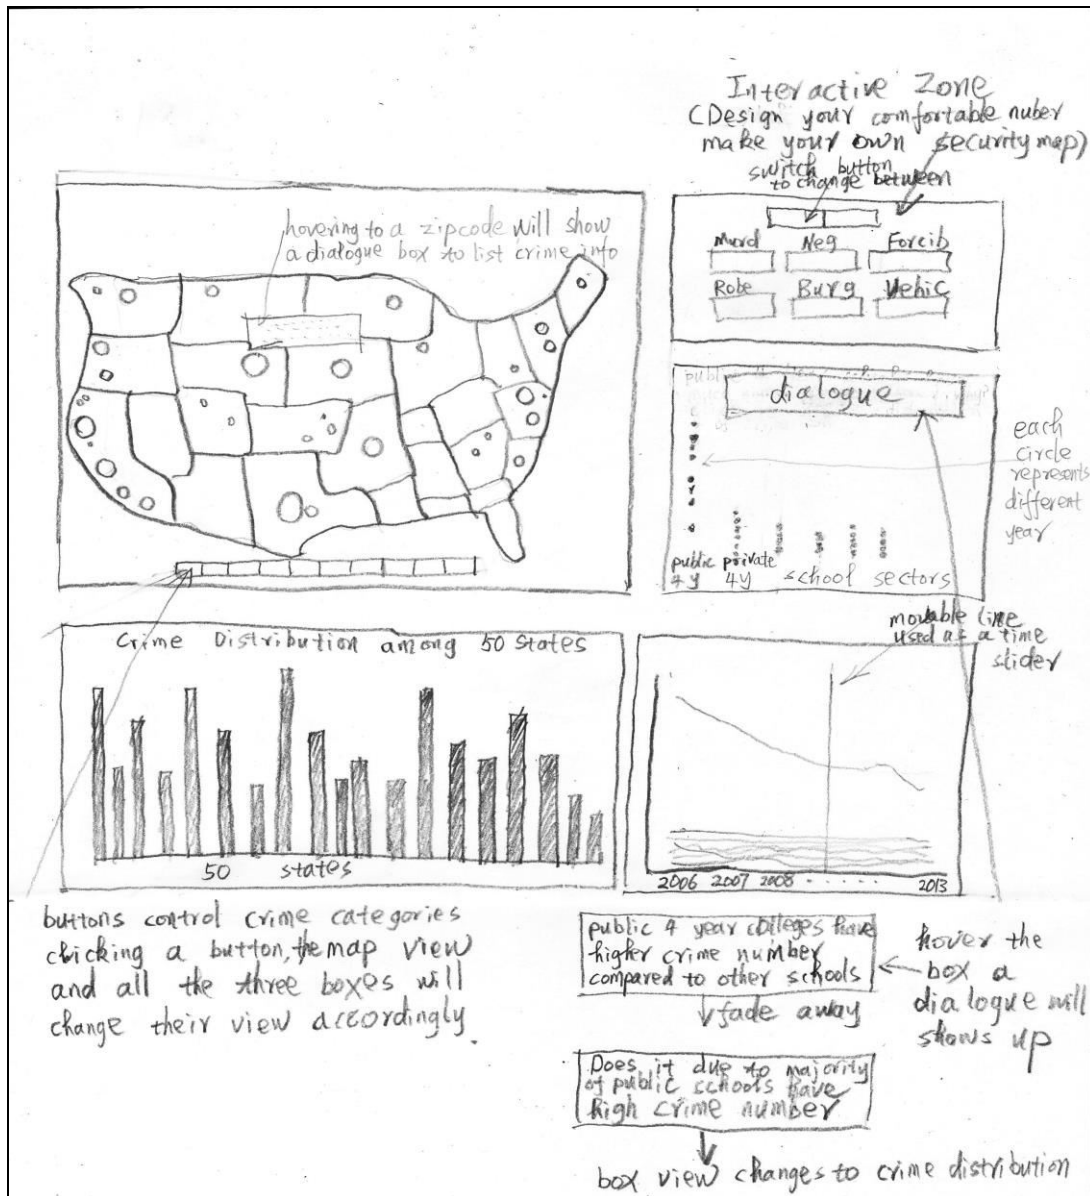 Interactive Zone
(Design your comfortable nuber
make your own security map)
switch button
to change between
hovering to a zipcode will show
a dialogue box to list crime info
Murd Neg Forcib
Robe Burg Vehic
dialogue
each
circle
represents
different
year
public private
4 y 4y school sectors
Crime Distribution among 50 states
50 states
movable line
used as a time
slider
2006 2007 2008 . . . . . . 2013
buttons control crime categories
clicking a button, the map view
and all the three boxes will
change their view accordingly.
public 4 year colleges have
higher crime number
compared to other schools
hover the
box a
dialogue will
shows up
fade away
Does it due to majority
of public schools have
high crime number
box view changes to crime distribution